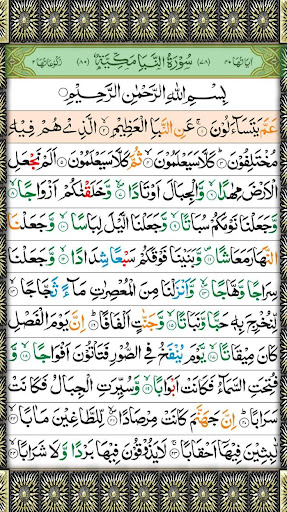 اٰیاتها ٤٠ (٧٨) سُوْرَةُ النَّبَاِ مَكِّیَّةٌ (٨٠) رُكُوْعَاتُهَا ٢
بِسْمِ اللّٰهِ الرَّحْمٰنِ الرَّحِیْمِ
عَمَّ یَتَسَآءَلُوْنَ ۚ﴿۱﴾ عَنِ النَّبَاِ الْعَظِیْمِ ۙ﴿۲﴾ الَّذِیْ هُمْ فِیْهِ
مُخْتَلِفُوْنَ ؕ﴿۳﴾ كَلَّا سَیَعْلَمُوْنَ ۙ﴿۴﴾ ثُمَّ كَلَّا سَیَعْلَمُوْنَ ﴿۵﴾ اَلَمْ نَجْعَلِ
الْاَرْضَ مِهٰدًا ۙ﴿۶﴾ وَّ الْجِبَالَ اَوْتَادًا ﴿۷﴾ وَّ خَلَقْنٰكُمْ اَزْوَاجًا ۙ﴿۸﴾
وَّ جَعَلْنَا نَوْمَكُمْ سُبَاتًا ۙ﴿۹﴾ وَّ جَعَلْنَا الَّیْلَ لِبَاسًا ۙ﴿۱۰﴾ وَّ جَعَلْنَا
النَّهَارَ مَعَاشًا ﴿۱۱﴾ وَّ بَنَیْنَا فَوْقَكُمْ سَبْعًا شِدَادًا ۙ﴿۱۲﴾ وَّ جَعَلْنَا
سِرَاجًا وَّهَّاجًا ﴿۱۳﴾ وَّ اَنْزَلْنَا مِنَ الْمُعْصِرٰتِ مَآءً ثَجَّاجًا ۙ﴿۱۴﴾
لِّنُخْرِجَ بِهٖ حَبًّا وَّ نَبَاتًا ۙ﴿۱۵﴾ وَّ جَنّٰتٍ اَلْفَافًا ؕ﴿۱۶﴾ اِنَّ یَوْمَ الْفَصْلِ
كَانَ مِیْقَاتًا ۙ﴿۱۷﴾ یَّوْمَ یُنْفَخُ فِی الصُّوْرِ فَتَاْتُوْنَ اَفْوَاجًا ۙ﴿۱۸﴾ وَّ
فُتِحَتِ السَّمَآءُ فَكَانَتْ اَبْوَابًا ۙ﴿۱۹﴾ وَّ سُیِّرَتِ الْجِبَالُ فَكَانَتْ
سَرَابًا ؕ﴿۲۰﴾ اِنَّ جَهَنَّمَ كَانَتْ مِرْصَادًا ۙ﴿۲۱﴾ لِّلطَّاغِیْنَ مَاٰبًا ۙ﴿۲۲﴾
لّٰبِثِیْنَ فِیْهَاۤ اَحْقَابًا ۚ﴿۲۳﴾ لَا یَذُوْقُوْنَ فِیْهَا بَرْدًا وَّ لَا شَرَابًا ۙ﴿۲۴﴾